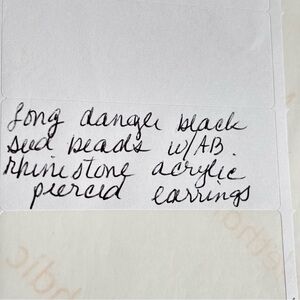 Long dangle black
seed beads w/AB
rhinestone acrylic
pierced earrings